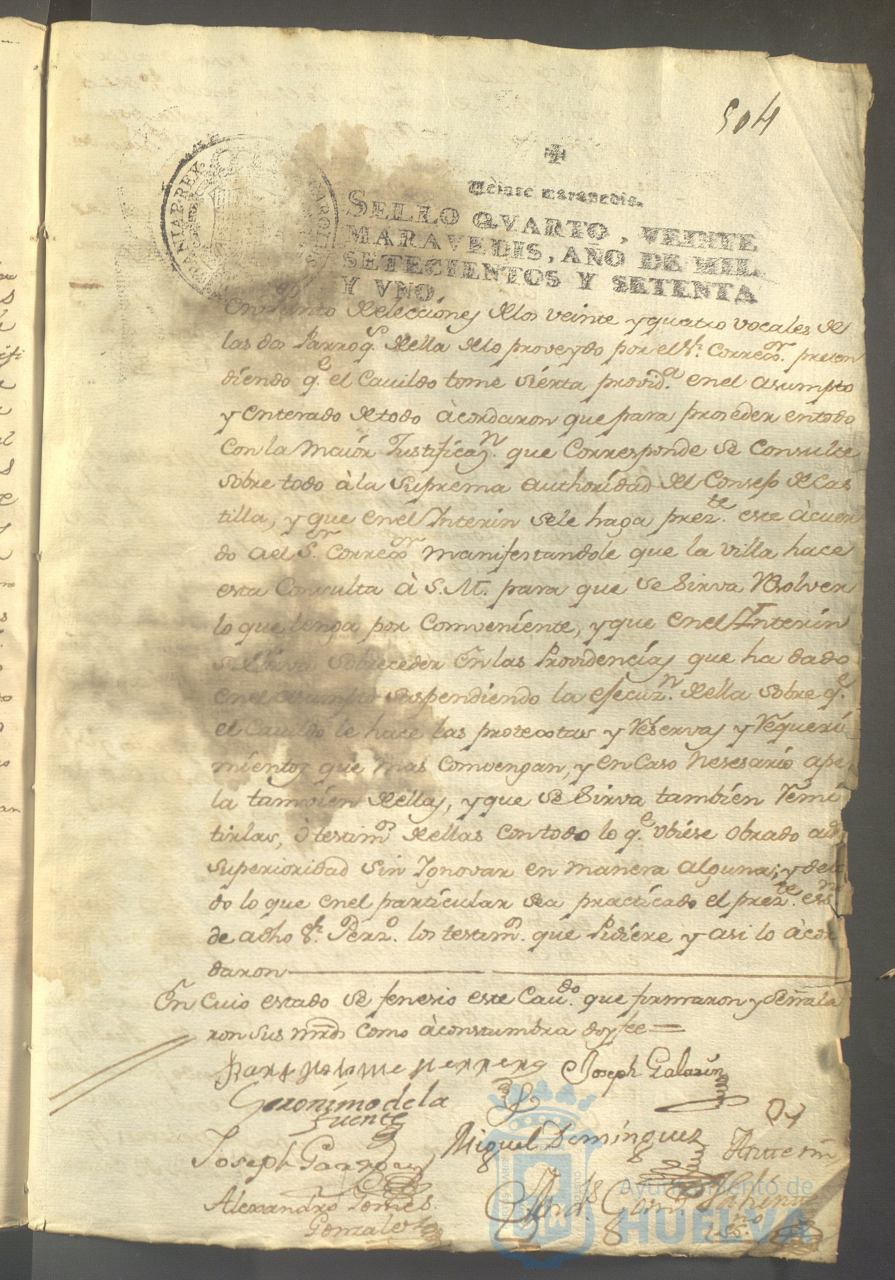 504
Veinte maravedis.
SELLO QVARTO, VEINTE
MARAVEDIS, AÑO DE MIL
SETECIENTOS Y SETENTA
Y VNO.
de elecciones de los veinte y quatro vocales de
las dos Parroq.s della de lo proveydo por el S.r Correg.or preten
diendo q.e el Cavildo tome sierta provid.a en el asumpto
y enterado de todo àcordaron que para proseder en todo
con la maior Justificaz.n que corresponde se consulte
sobre todo à la suprema authoridad del Consejo de Cas
tilla, y que en el Interin se le haga prez.te este àcuer
do a el S.r Correg.or manifestandole que la villa hace
esta Consulta à S.M. para que se sirva Resolver
lo que tenga por comveniente, y que en el Interin
se sirva sobreceder en las Providencias que ha dado
en el asumpto suspendiendo la efecuz.n della sobre q.e
el Cavildo le hace las protextas y Reservas y Requeri
mientos que mas comvengan, y en caso nesesario ape
la tamvien dellas, y que se sirva tambien Remi
tirlas, ò testim.o dellas con todo lo q.e Ubiese obrado
superioridad sin Ignovar en manera alguna; y de to
do lo que en el particular sea practicado el prez.te ess.no
de a dho S.r Perz.o los testim.os que Pidiere y asi lo àcor
daron
En cuio estado se fenesio este Cav.do que firmaron y señala
ron sus mrds como àcostumbra doy fee =
Herrero Joseph Galarin
Geronimo de la
Fuente
Joseph Garrido Miguel Dominguez Ante mi
Alexandro Gomes
Gonzales
Ayuntamiento de
HUELVA